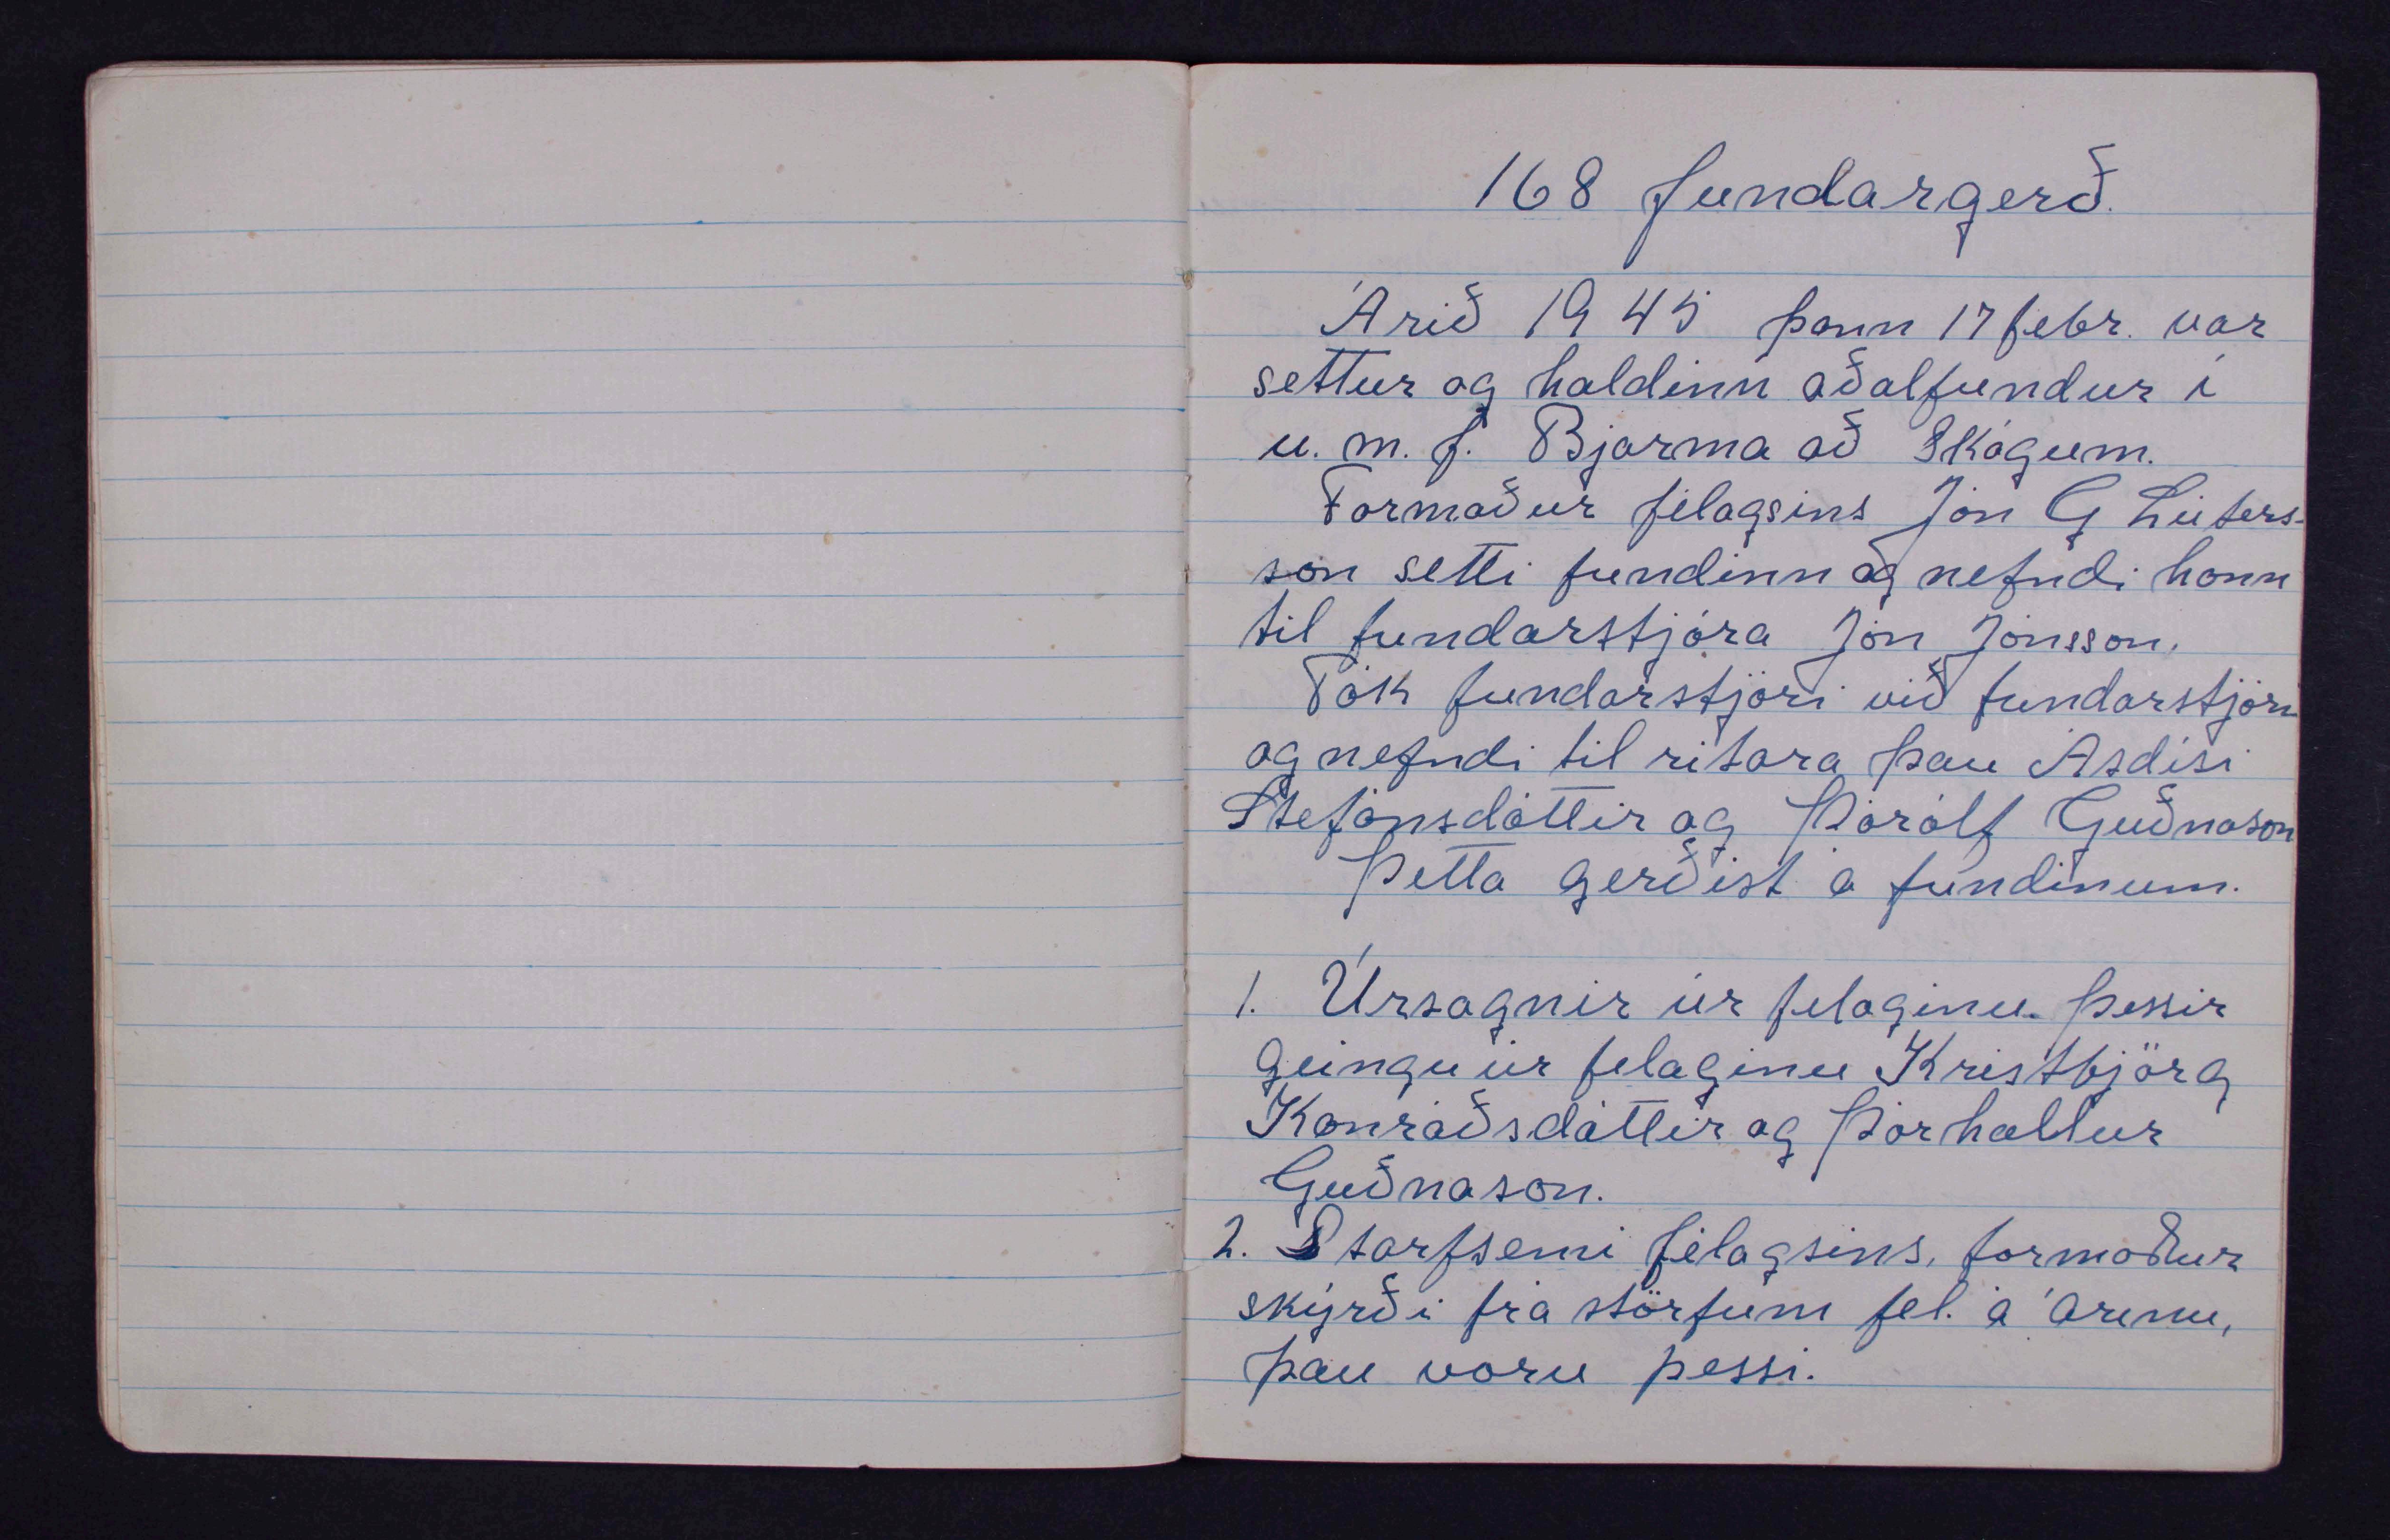 168 fundargerð.
Árið 1945 þann 17 febr. var
settur og haldinn aðalfundur í
u. m. f. Bjarma að Skógum.
Formaður félagsins Jón G Lúters-
son setti fundinn og nefndi hann
til fundarstjóra Jón Jónsson.
Tók fundarstjóri við fundarstjórn
og nefndi til ritara þau Ásdísi
Stefánsdóttir og Þórólf Guðnason
Þetta gerðist á fundinum.
1. Úrsagnir úr felaginu. Þessir
geingu úr felaginu Kristbjörg
Konráðsdóttir og Þórhallur
Guðnason.
2. Starfsemi félagsins, formaður
skýrði frá störfum fel. á árinu,
þau voru þessi.